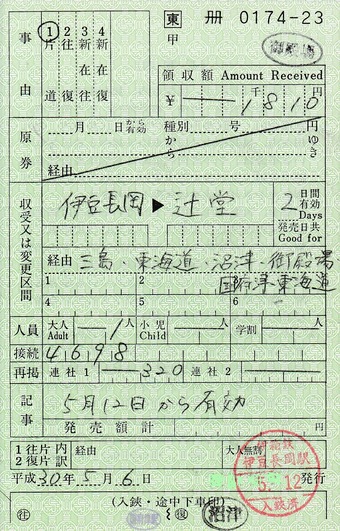 東 冊 0174-23
甲
御殿場
事由
1 2 3 4
片道 往復 新在往 新在往復
領収額 Amount Received
¥ ー 千 1810 円
原券
月 日から有効 種別 号 円
から ゆき
経由
収受又は変更区間
伊豆長岡 ▶ 辻堂
2 日間有効 Days
発売日共 Good for
経由 三島・東海道・沼津・御殿場・
国府津・東海道
1 2
4 5 6
人員 大人 Adult 1人 小児 Child 人 学割 人
接続 4698
再掲 連社1 ー320 連社2 ー
記事
5月12日から有効
発売額計
1往片 内
2復片 訳
経由
大人無割
平成30年5月6日 発行
伊豆長岡駅
5.12
入鋏済
(入鋏・途中下車印)
往 復 沼津